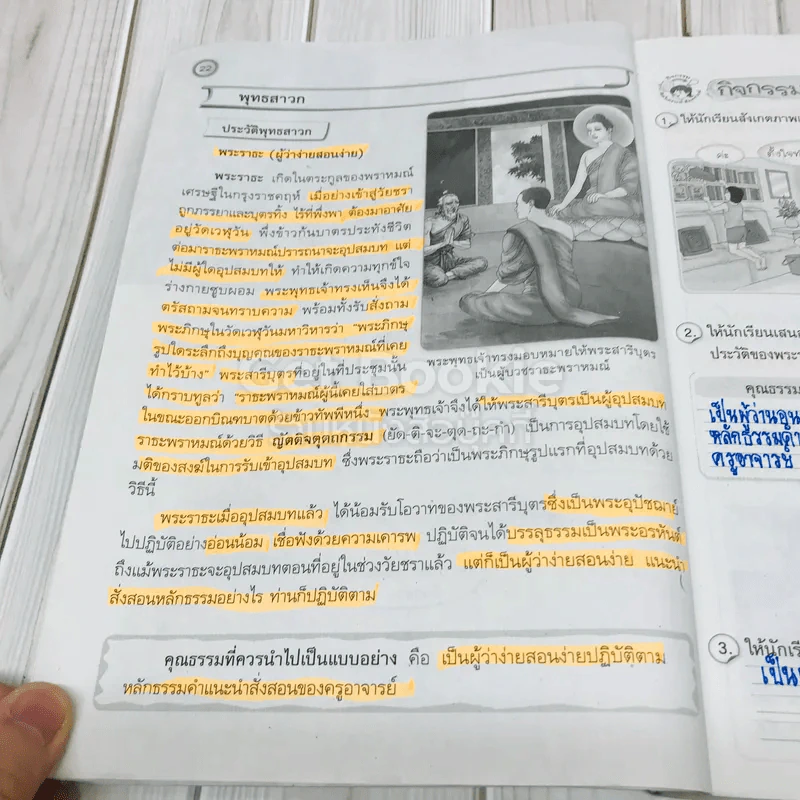 22
พุทธสาวก
ประวัติพุทธสาวก
พระราธะ (ผู้ว่าง่ายสอนง่าย)
พระราธะ เกิดในตระกูลของพราหมณ์
เศรษฐีในกรุงราชคฤห์ เมื่อย่างเข้าสู่วัยชรา
ถูกภรรยาและบุตรทิ้ง ไร้ที่พึ่งพา ต้องมาอาศัย
อยู่วัดเวฬุวัน พึ่งข้าวก้นบาตรประทังชีวิต
ต่อมาราธะพราหมณ์ปรารถนาจะอุปสมบท แต่
ไม่มีผู้ใดอุปสมบทให้ ทำให้เกิดความทุกข์ใจ
ร่างกายซูบผอม พระพุทธเจ้าทรงเห็นจึงได้
ตรัสถามจนทราบความ พร้อมทั้งรับสั่งถาม
พระภิกษุในวัดเวฬุวันมหาวิหารว่า "พระภิกษุ
รูปใดระลึกถึงบุญคุณของราธะพราหมณ์ที่เคย
ทำไว้บ้าง" พระสารีบุตรที่อยู่ในที่ประชุมนั้น
ได้กราบทูลว่า "ราธะพราหมณ์ผู้นี้เคยใส่บาตร
ในขณะออกบิณฑบาตด้วยข้าวทัพพีหนึ่ง พระพุทธเจ้าจึงได้ให้พระสารีบุตรเป็นผู้อุปสมบท
ราธะพราหมณ์ด้วยวิธี ญัตติจตุตถกรรม (ยัด-ติ-จะ-ตุด-ถะ-กำ) เป็นการอุปสมบทโดยใช้
มติของสงฆ์ในการรับเข้าอุปสมบท ซึ่งพระราธะถือว่าเป็นพระภิกษุรูปแรกที่อุปสมบทด้วย
วิธีนี้
พระพุทธเจ้าทรงมอบหมายให้พระสารีบุตร
เป็นผู้บวชราธะพราหมณ์
พระราธะเมื่ออุปสมบทแล้ว ได้น้อมรับโอวาทของพระสารีบุตรซึ่งเป็นพระอุปัชฌาย์
ไปปฏิบัติอย่างอ่อนน้อม เชื่อฟังด้วยความเคารพ ปฏิบัติจนได้บรรลุธรรมเป็นพระอรหันต์
ถึงแม้พระราธะจะอุปสมบทตอนที่อยู่ในช่วงวัยชราแล้ว แต่ก็เป็นผู้ว่าง่ายสอนง่าย แนะนำ
สั่งสอนหลักธรรมอย่างไร ท่านก็ปฏิบัติตาม
คุณธรรมที่ควรนำไปเป็นแบบอย่าง คือ เป็นผู้ว่าง่ายสอนง่ายปฏิบัติตาม
หลักธรรมคำแนะนำสั่งสอนของครูอาจารย์
กิจกรรม
1. ให้นักเรียนสังเกตภาพ
2. ให้นักเรียนเสน
ประวัติของพระ
คุณธรรม
เป็นผู้ว่านอน
หลักธรรมคำ
ครูอาจารย์
3. ให้นักเรี
เป็น